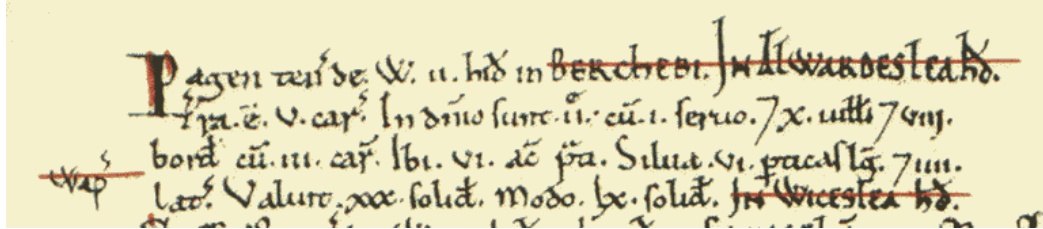 Pagen ten' de. W. ii. hid in BERCHEBI. IN ALWARDESLEA HD.
T'ra. ē. v. car'. In dn̄io sunt. ii. cū. i. seruo. 7 x. uilli 7 viii.
bord cū. iii. car'. Ibi. vi. ac̄ p̄ti. Silua. vi. ptcas lḡ. 7 iiii.
Wap'
lat'. Valuit. xxx. solid. Modo. lx. solid. IN WICESLEA HD.